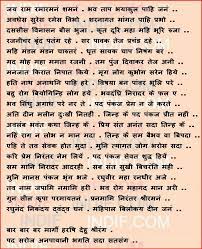 जय राम रमारमनं शमनं . भव ताप भयाकुल पाहि जनं ..
अवधेस सुरेस रमेस विभो . शरनागत मांगत पाहि प्रभो ..
दससीस विनासन बीस भुजा . कृत दूरि महा महि भूरि रुजा ..
रजनीचर बृंद पतंग रहे . सर पावक तेज प्रचंड दहे ..
महि मंडल मंडन चारुतरं . धृत सायक चाप निषंग बरं .
मद मोह महा ममता रजनी . तम पुंज दिवाकर तेज अनी ..
मनजात किरात निपात किये . मृग लोग कुभोग सरेन हिये ..
हति नाथ अनाथनि पाहि हरे . विषया बन पांवर भूलि परे ..
बहु रोग बियोगन्हि लोग हये . भवदंघ्रि निरादर के फल ए ..
भव सिंधु अगाध परे नर ते . पद पंकज प्रेम न जे करते ..
अति दीन मलीन दुःखी नितहीं . जिन्ह कें पद पंकज प्रीत नहीं ..
अवलंब भवंत कथा जिन्ह कें . प्रिय संत अनंत सदा तिन्ह कें ..
नहि राग न लोभ न मान मदा . तिन्ह कें सम बैभव वा बिपदा ..
एहि ते तव सेवक होत मुदा . मुनि त्यागत जोग भरोस सदा ..
करि प्रेम निरंतर नेम लियें . पद पंकज सेवत शुद्ध हियें ..
सम मानि निरादर आदरही . सब संत सुखी बिचरंति मही ..
मुनि मानस पंकज भृंग भजे . रघुबीर महा रनधीर अजे ..
तव नाम जपामि नमामि हरी . भव रोग महागद मान अरी ..
गुन सील कृपा परमायतनं . प्रनमामि निरंतर श्रीरमनं ..
रघुनंद निकंदय द्वंद्व घनं . महिपाल बिलोकय दीन जनं ..
बार बार बर मागौं हरषि देहु श्रीरंग .
पद सरोज अनपायनी भगति सदा सतसंग ..
INDIF.COM